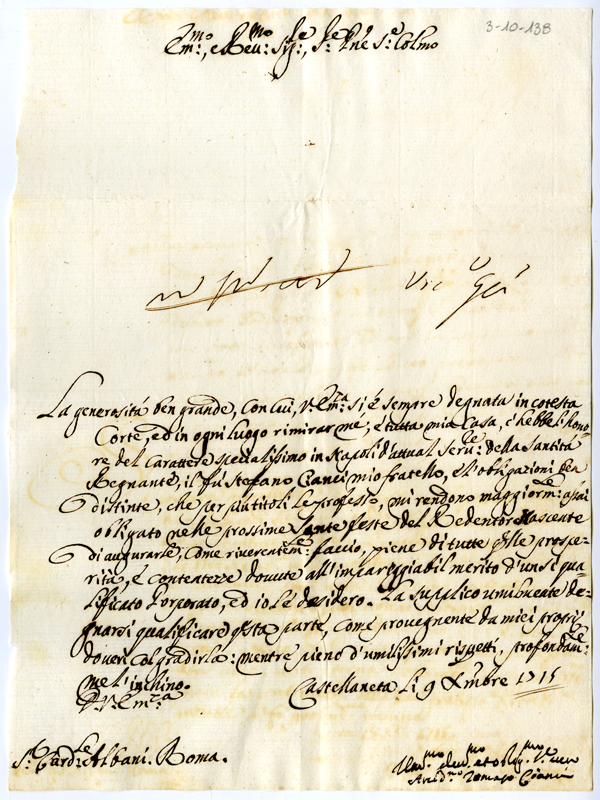 3-10-138
Em:mo, e Reu:mo Sig:re, S:re P̃ne S:e Colmo
La generosità ben grande, con cui V. Em:za si è sempre degnata in cotesta
Corte, ed in ogni luogo rimirar me, e tutta mia Casa, ch'hebbe l'hono-
re del carattere specialissimo in Napoli d'attual Seru:re della Santità
Regnante, il fù Stefano Cianci mio fratello, e l'obligazioni ben
distinte, che per più titoli le professo, mi rendono maggiorm:te assai
obligato nelle prossime Sante feste del Redentore Nascente
di augurarle, come riverentem:te faccio, piene di tutte q̃lle prospe-
rità, e contentezze douute all'impareggiabil merito d'un sì qua-
lificato Porporato, ed io le desidero. La supplico umilmente de-
gnarsi qualificare q̃sta parte, come prouegnente da miei proprij
doueri col gradirla: mentre pieno d'umilissimi rispetti, profondam:te
me l'inchino.
D. V. Em:za
Castellaneta li 9 Xmbre 1715
S:r Card:le Albani. Roma.
Um:mo deu:mo et oblig:mo S:re uero
Arcid:no Tomaso Cianci